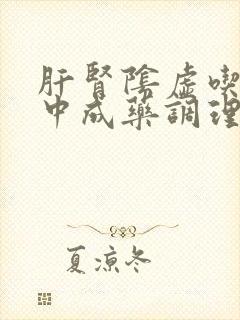 肝腎陰虛喫
中成藥調理
夏涼冬